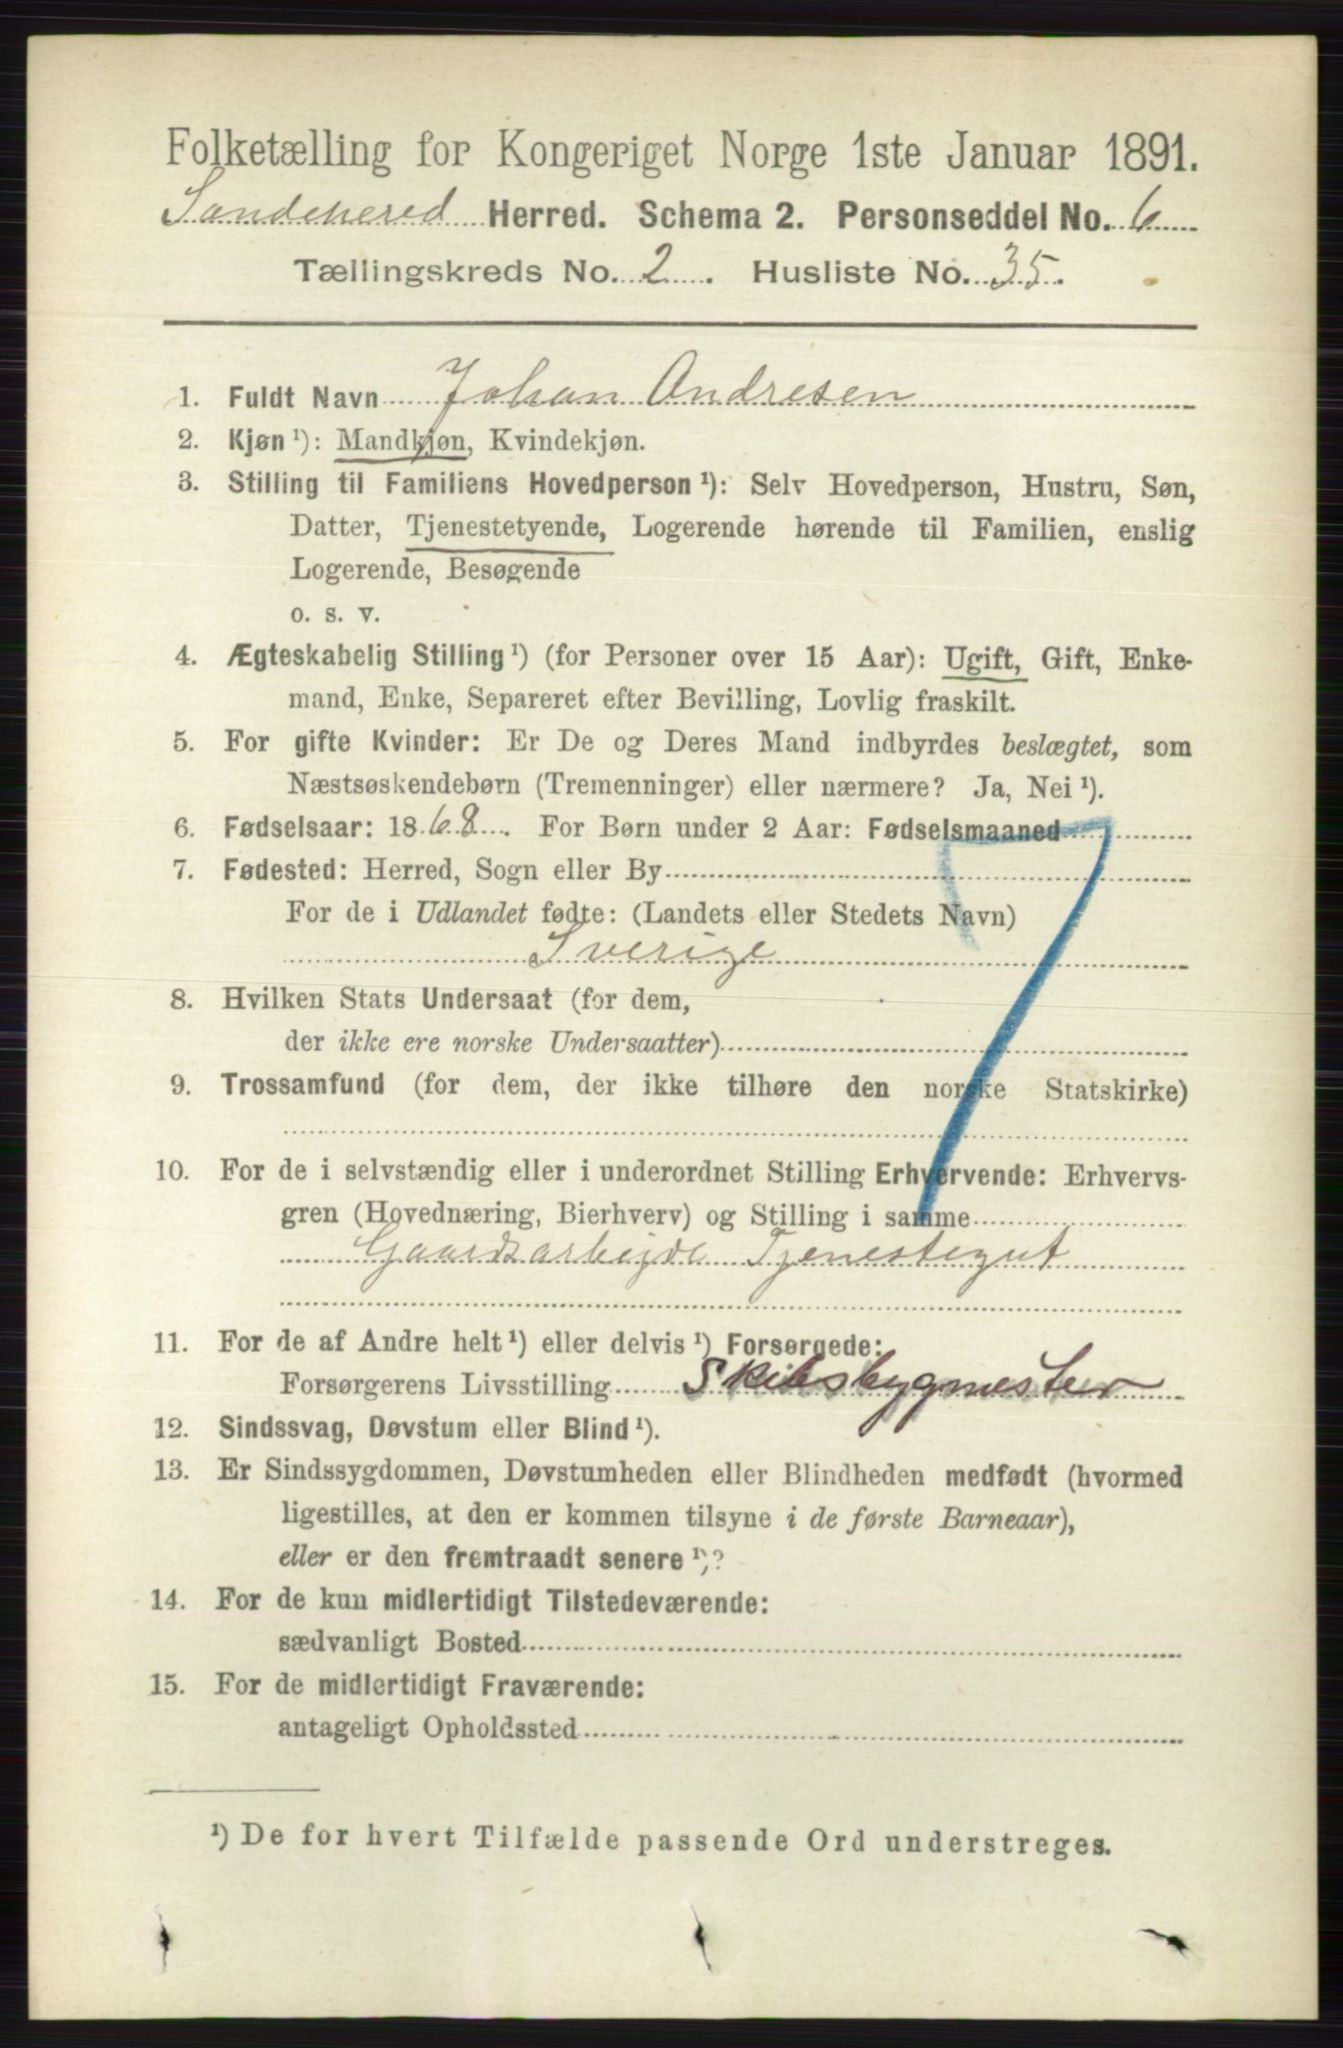 Folketælling for Kongeriget Norge 1ste Januar 1891.
Sandehered Herred. Schema 2. Personseddel No. 6
Tællingskreds No. 2. Husliste No. 35.
1. Fuldt Navn Johan Andresen
2. Kjøn ¹): Mandkjøn, Kvindekjøn.
3. Stilling til Familiens Hovedperson ¹): Selv Hovedperson, Hustru, Søn,
Datter, Tjenestetyende, Logerende hørende til Familien, enslig
Logerende, Besøgende
o. s. v.
4. Ægteskabelig Stilling ¹) (for Personer over 15 Aar): Ugift, Gift, Enke-
mand, Enke, Separeret efter Bevilling, Lovlig fraskilt.
5. For gifte Kvinder: Er De og Deres Mand indbyrdes beslægtet, som
Næstsøskendebørn (Tremenninger) eller nærmere? Ja, Nei ¹).
6. Fødselsaar: 1868. For Børn under 2 Aar: Fødselsmaaned
7. Fødested: Herred, Sogn eller By
For de i Udlandet fødte: (Landets eller Stedets Navn)
Sverige
7
8. Hvilken Stats Undersaat (for dem,
der ikke ere norske Undersaatter)
9. Trossamfund (for dem, der ikke tilhøre den norske Statskirke)
10. For de i selvstændig eller i underordnet Stilling Erhvervende: Erhvervs-
gren (Hovednæring, Bierhverv) og Stilling i samme
Gaardsarbejde Tjenestegut
11. For de af Andre helt ¹) eller delvis ¹) Forsørgede:
Forsørgerens Livsstilling Skibsbygmester
12. Sindssvag, Døvstum eller Blind ¹).
13. Er Sindssygdommen, Døvstumheden eller Blindheden medfødt (hvormed
ligestilles, at den er kommen tilsyne i de første Barneaar),
eller er den fremtraadt senere ¹)?
14. For de kun midlertidigt Tilstedeværende:
sædvanligt Bosted
15. For de midlertidigt Fraværende:
antageligt Opholdssted
¹) De for hvert Tilfælde passende Ord understreges.